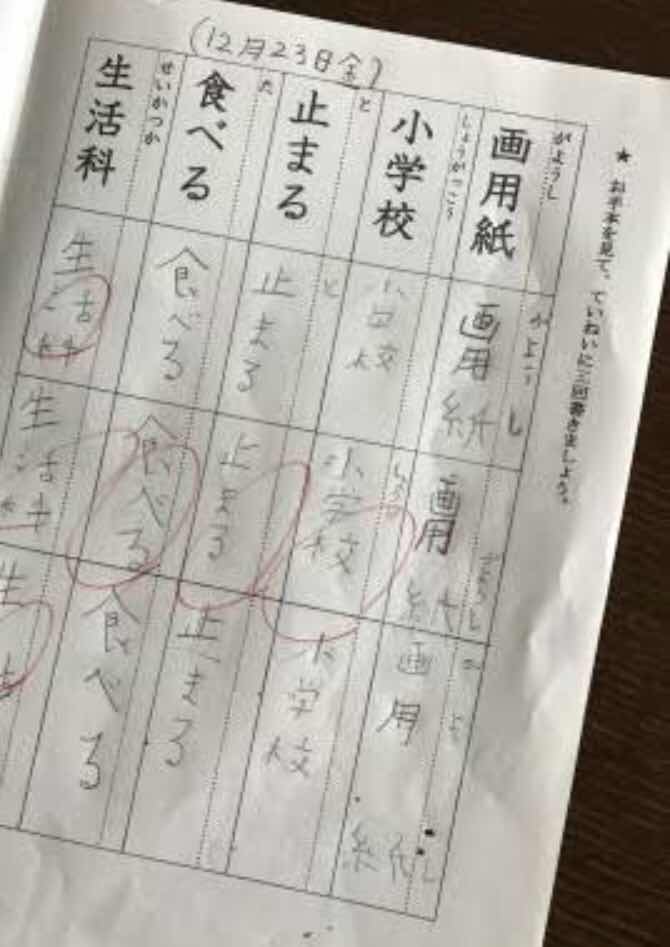 (12月23日金)
★ お手本を見て、ていねいに三回書きましょう。
がようし
画用紙
がようし
画用紙
がようし
画用紙
がよ
画用紙
しょうがっこう
小学校
小学校
小学校
小学校
と
止まる
と
止まる
止まる
止まる
た
食べる
食べる
食べる
食べる
せいかつか
生活科
生活科
生活科
生